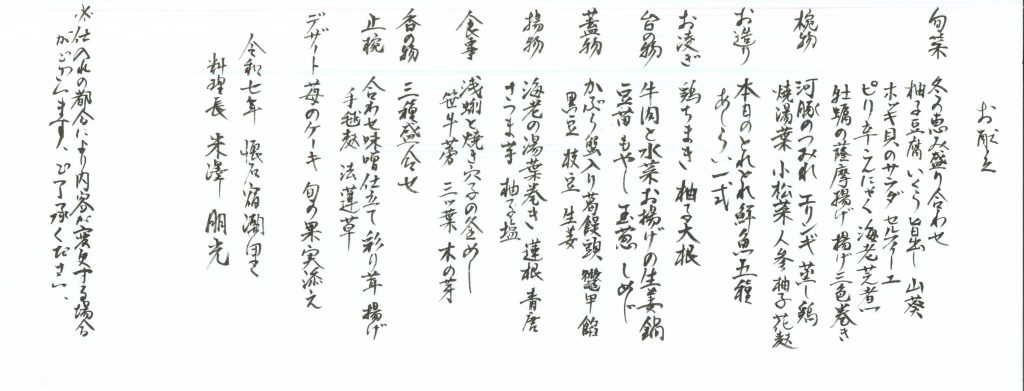 お献立
旬菜 冬の恵み盛り合わせ
柚子豆腐 いくら 旨出し 山葵
ホッキ貝のサラダ セルフィーユ
ピリ辛こんにゃく 海老芝煮
牡蠣の薩摩揚げ 揚げ三色巻き
椀物 河豚のつみれ エリンギ 蒸し鶏
焼湯葉 小松菜 人参 柚子 花麩
お造り 本日のとれとれ鮮魚五種
あしらい一式
お凌ぎ 鶏ちまき 柚子大根
台の物 牛肉と水菜お揚げの生姜鍋
豆苗 もやし 玉葱 しめじ
蓋物 かぶら 蟹入り葛饅頭 鼈甲餡
黒豆 枝豆 生姜
揚物 海老の湯葉巻き 蓮根 青唐
さつま芋 柚子塩
食事 浅蜊と焼き穴子の釜めし
笹牛蒡 三ッ葉 木の芽
香の物 三種盛合せ
止椀 合わせ味噌仕立て 彩り茸 揚げ
手毬麩 法蓮草
デザート 苺のケーキ 旬の果実添え
令和七年 懐石宿 潮里
料理長 朱澤 朋光
※仕入れの都合により内容が変更する場合
がございます、ご了承ください、